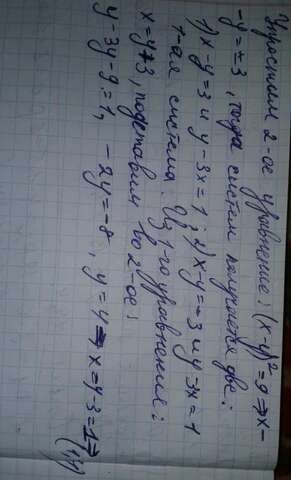 Упростим 2-ое уравнение: (x-y)²=9 ⇒ x-
-y=±3, тогда систем получается две:
1) x-y=3 и y-3x=1; 2) x-y=-3 и y-3x=1
1-ая система. Из 1-го уравнения:
x=y+3, подставим во 2-ое:
y-3y-9=1, -2y=-8, y=4 ⇒ x=4-3=1 ⇒
(1;4)